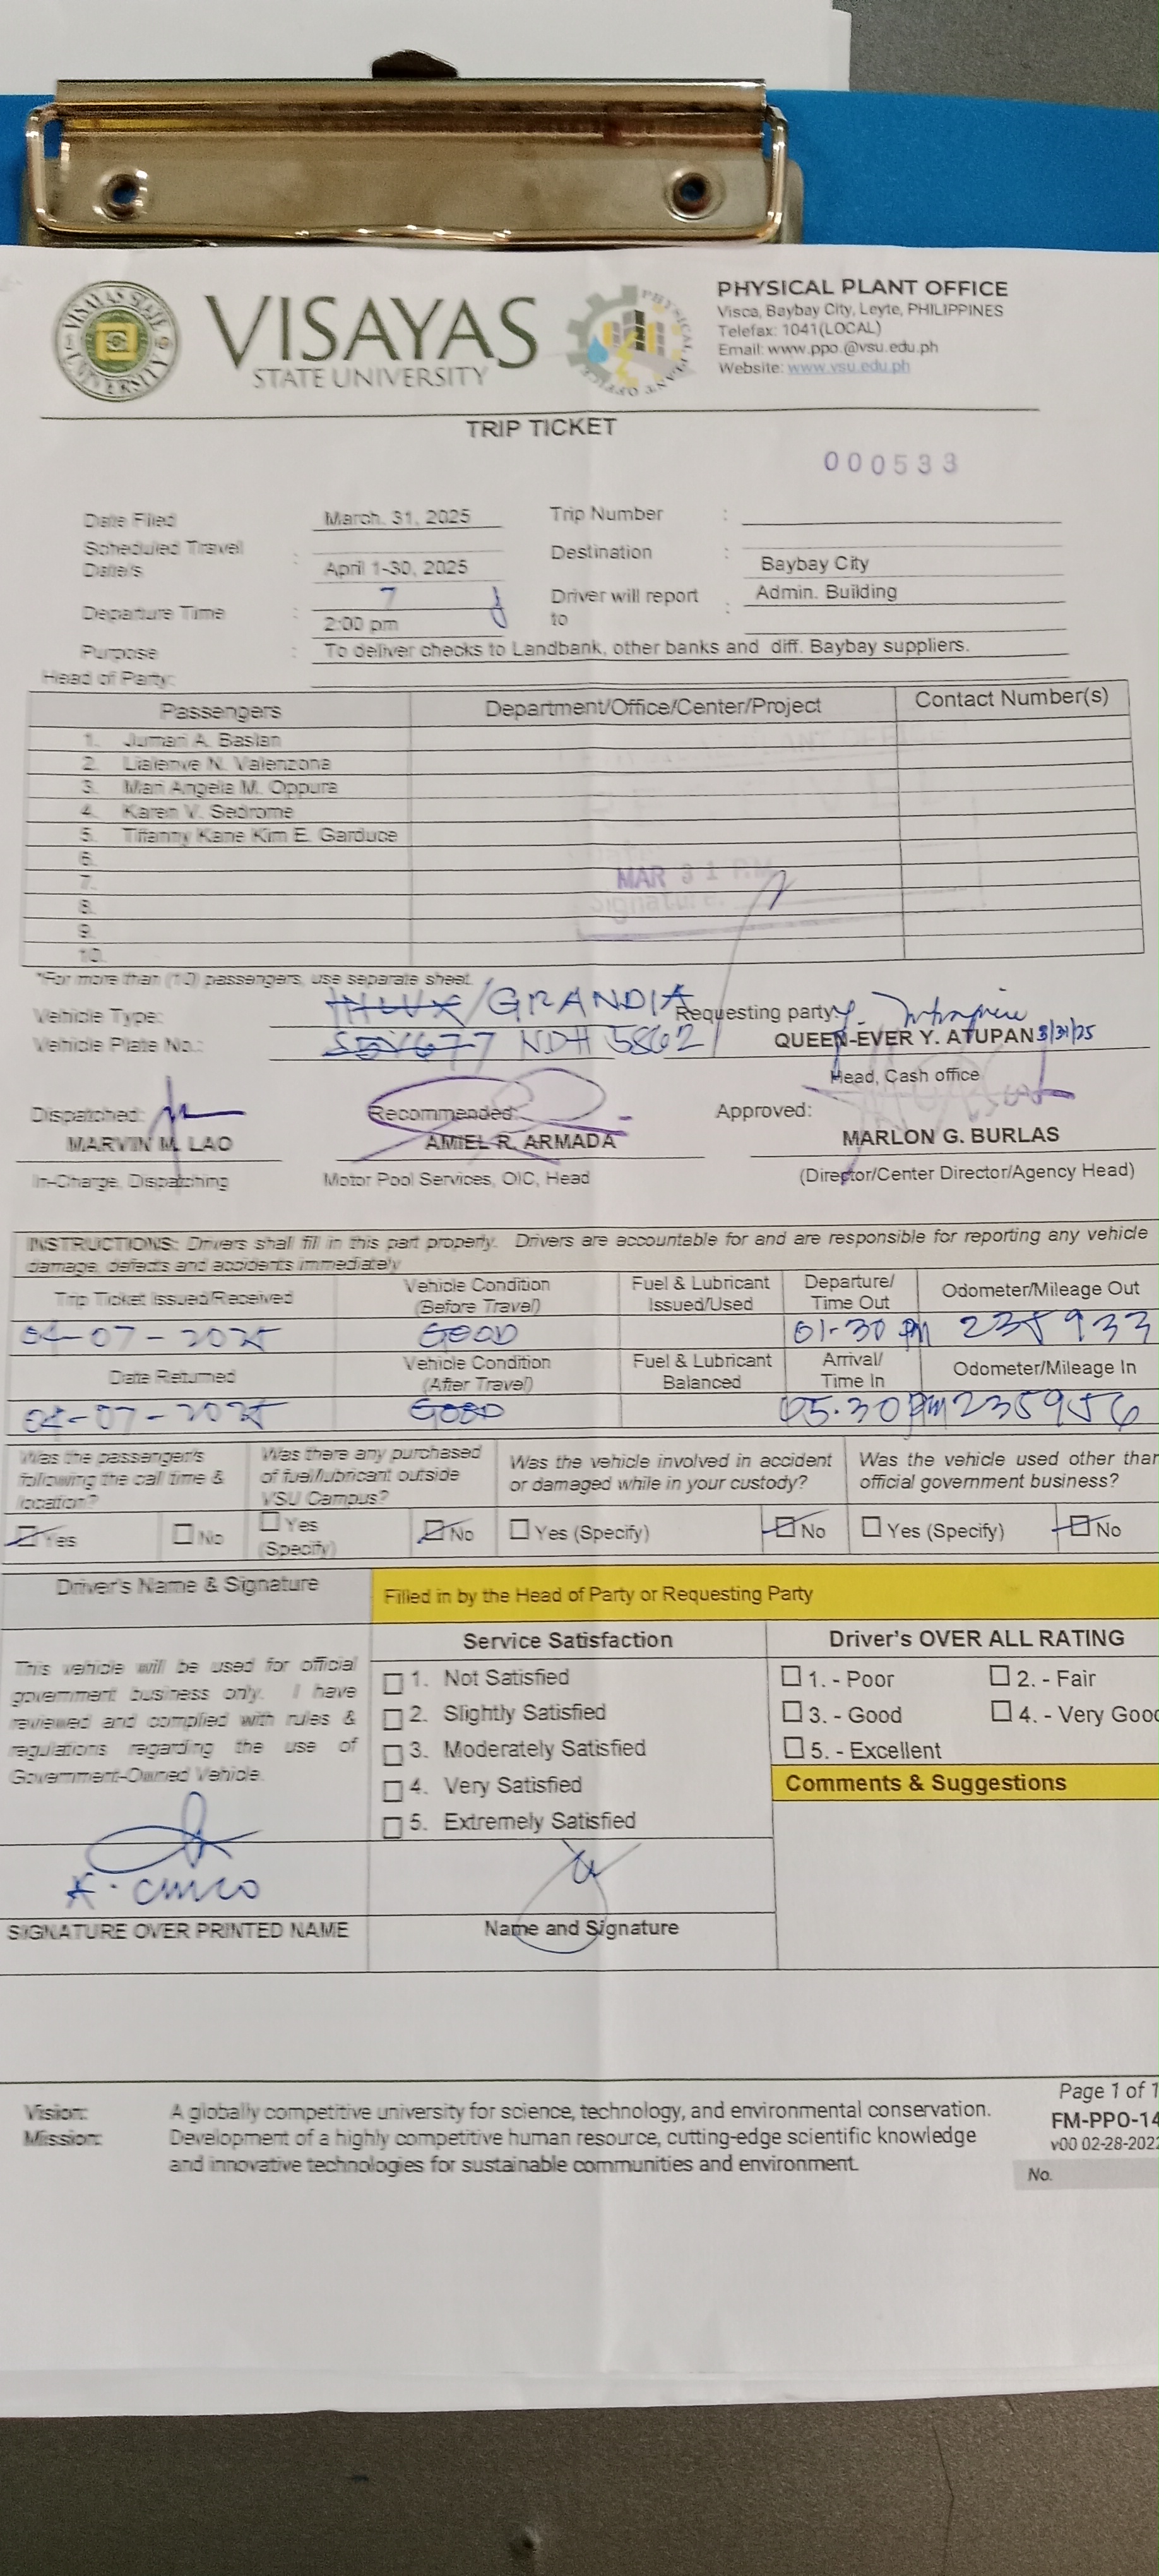 VISAYAS STATE UNIVERSITY
VISAYAS
STATE UNIVERSITY
PHYSICAL PLANT OFFICE
PHYSICAL PLANT OFFICE
Visca, Baybay City, Leyte, PHILIPPINES
Telefax: 1041(LOCAL)
Email: www.ppo.@vsu.edu.ph
Website: www.vsu.edu.ph
TRIP TICKET
000533
Date Filed March. 31, 2025 Trip Number :
Scheduled Travel Date/s : April 1-30, 2025 Destination : Baybay City
7
Departure Time : 2:00 pm Driver will report to : Admin. Building
Purpose : To deliver checks to Landbank, other banks and diff. Baybay suppliers.
Head of Party:
Passengers Department/Office/Center/Project Contact Number(s)
1. Jumari A. Baslan
2. Lialenve N. Valenzona
3. Mari Angela M. Oppura
4. Karen V. Sedrome
5. Tiffanny Kane Kim E. Garduce
6.
7. MAR 31 P.M.
8. Signature:
9.
10.
*For more than (10) passengers, use separate sheet.
Vehicle Type: HILUX / GRANDIA Requesting party:
Vehicle Plate No.: NDH 5862 QUEEN-EVER Y. ATUPAN 3/31/25
Head, Cash office
Dispatched: Recommended: Approved:
MARVIN M. LAO AMIEL R. ARMADA MARLON G. BURLAS
In-Charge, Dispatching Motor Pool Services, OIC, Head (Director/Center Director/Agency Head)
INSTRUCTIONS: Drivers shall fill in this part properly. Drivers are accountable for and are responsible for reporting any vehicle
damage, defects and accidents immediately
Trip Ticket Issued/Received Vehicle Condition (Before Travel) Fuel & Lubricant Issued/Used Departure/ Time Out Odometer/Mileage Out
04-07-2025 GOOD 01-30 PM 235933
Date Returned Vehicle Condition (After Travel) Fuel & Lubricant Balanced Arrival/ Time In Odometer/Mileage In
04-07-2025 GOOD 05.30 PM 235956
Was the passenger's following the call time & location? Was there any purchased of fuel/lubricant outside VSU Campus? Was the vehicle involved in accident or damaged while in your custody? Was the vehicle used other than official government business?
Yes No Yes (Specify) No Yes (Specify) No Yes (Specify) No
Driver's Name & Signature Filled in by the Head of Party or Requesting Party
Service Satisfaction Driver's OVER ALL RATING
This vehicle will be used for official
government business only. I have
reviewed and complied with rules &
regulations regarding the use of
Government-Owned Vehicle.
1. Not Satisfied
2. Slightly Satisfied
3. Moderately Satisfied
4. Very Satisfied
5. Extremely Satisfied
1. - Poor 2. - Fair
3. - Good 4. - Very Good
5. - Excellent
Comments & Suggestions
SIGNATURE OVER PRINTED NAME Name and Signature
Page 1 of 1
Vision: A globally competitive university for science, technology, and environmental conservation.
FM-PPO-14
Mission: Development of a highly competitive human resource, cutting-edge scientific knowledge
v00 02-28-2022
and innovative technologies for sustainable communities and environment.
No.